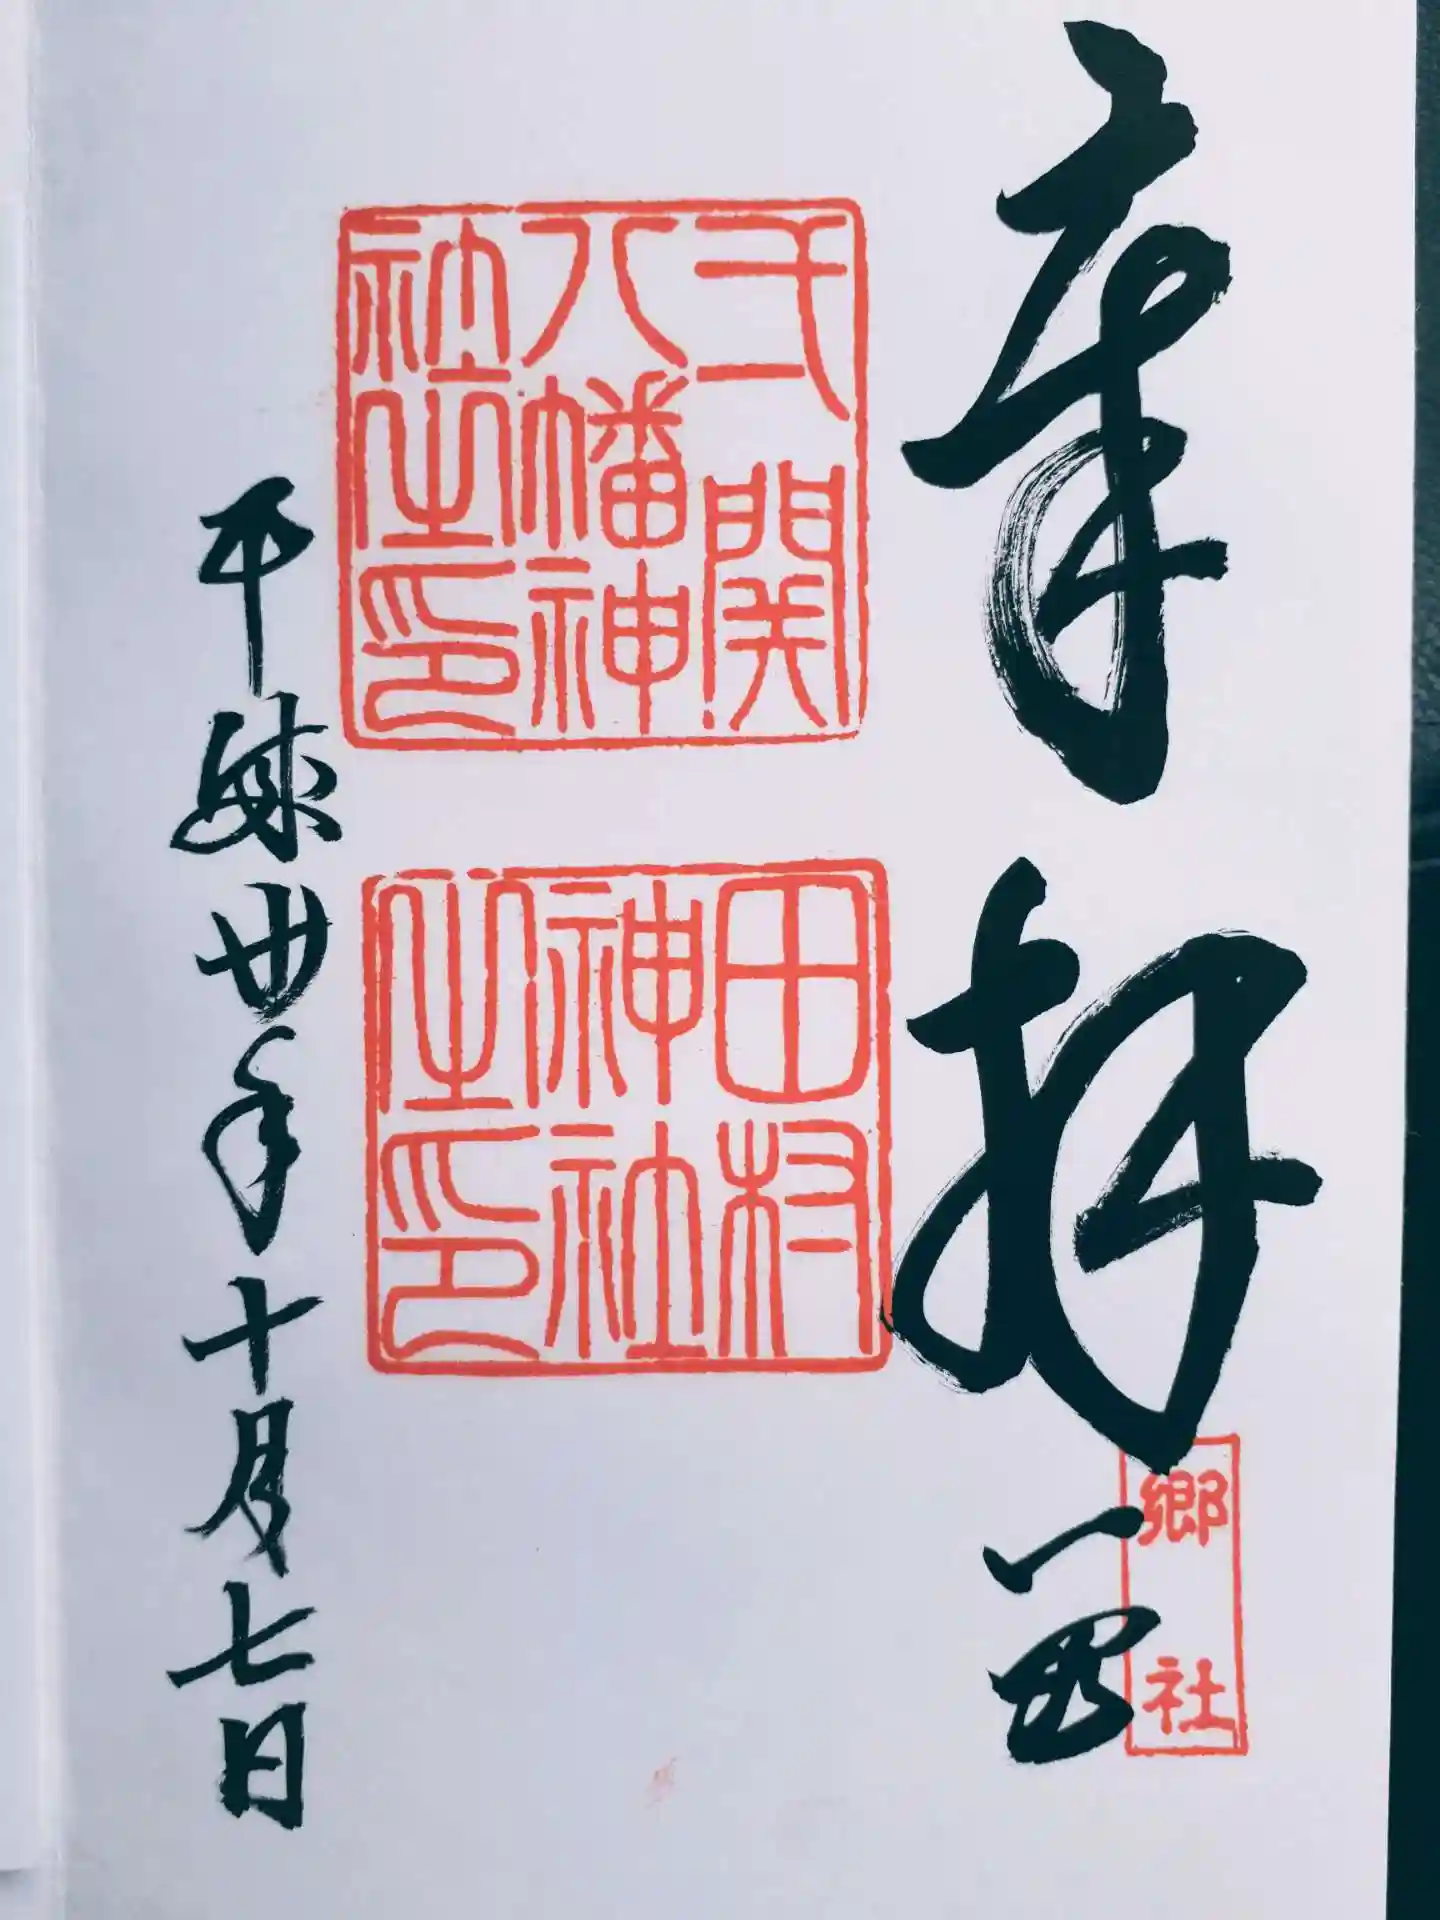 奉拝 一関
郷社
弌関八幡神社之印
田村神社之印
平成卅年十月七日